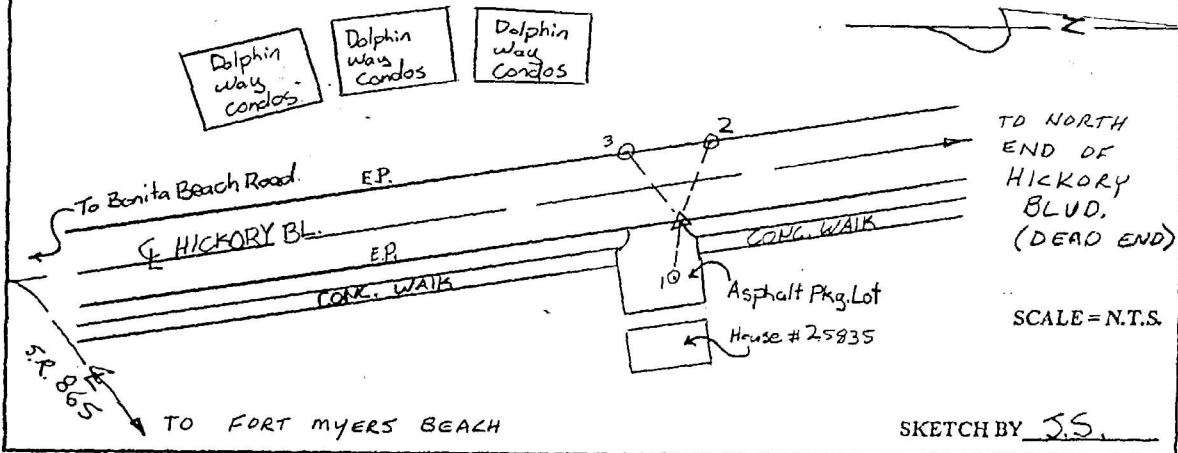 Dolphin
Way
Condos
Dolphin
Way
Condos
Dolphin
Way
Condos
Z
3
2
TO NORTH
END OF
HICKORY
BLVD.
(DEAD END)
To Bonita Beach Road.
E.P.
℄ HICKORY BL.
E.P.
CONC. WALK
CONC. WALK
1
Asphalt Pkg. Lot
House # 25835
SCALE = N.T.S.
S.R. 865
℄
TO FORT MYERS BEACH
SKETCH BY J.S.